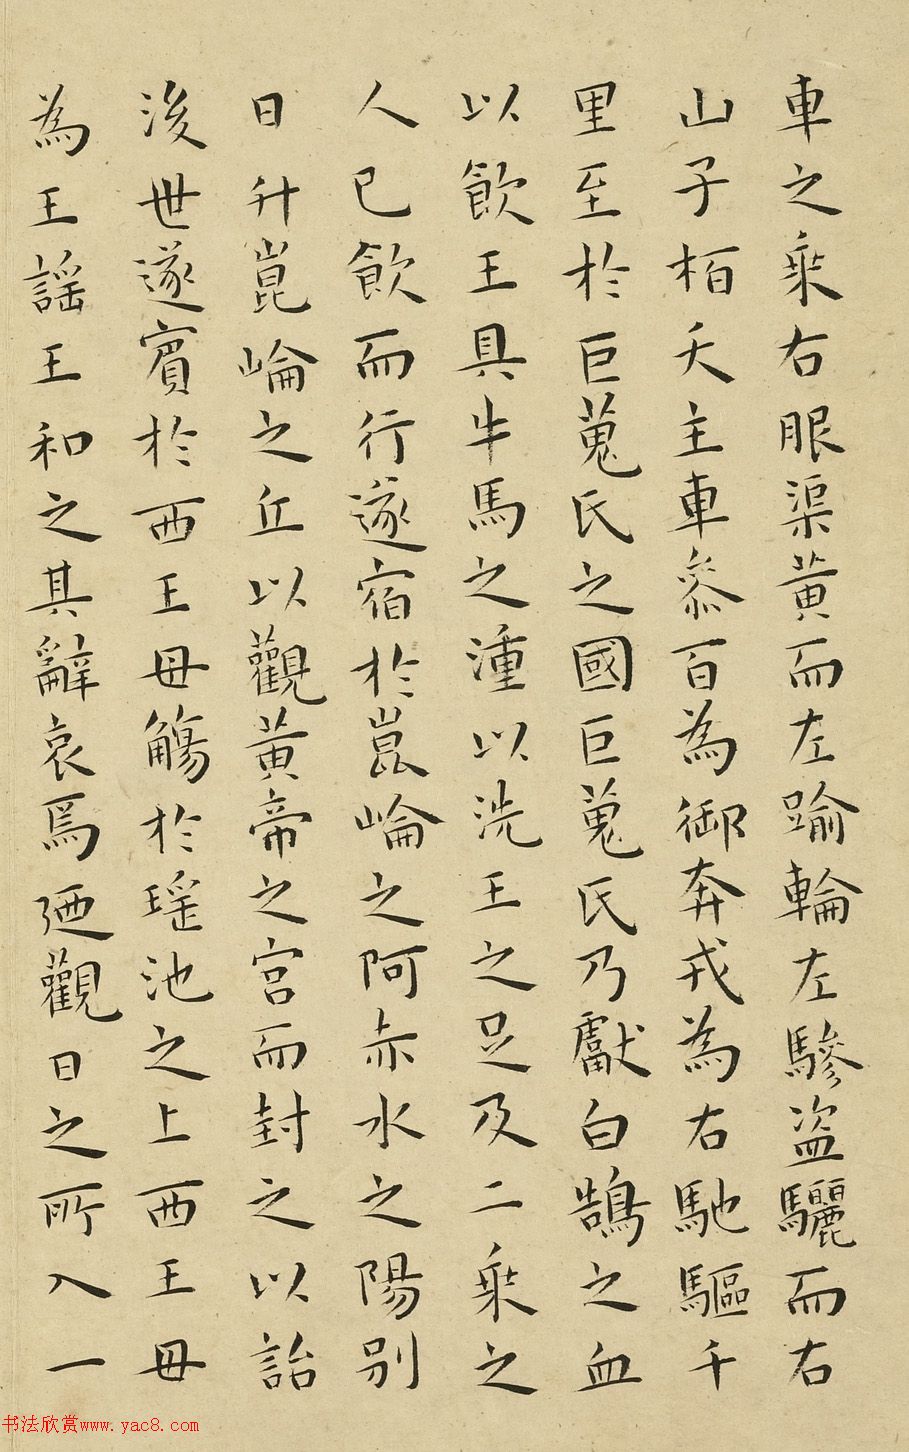 車之乘右服渠黃而左踰輪左驂盜驪而右
山子栢夭主車叅百為御奔戎為右馳驅千
里至於巨蒐氏之國巨蒐氏乃獻白鵠之血
以飲王具牛馬之湩以洗王之足及二乘之
人已飲而行遂宿於崑崘之阿赤水之陽別
日升崑崘之丘以觀黃帝之宮而封之以詒
後世遂賓於西王母觴於瑤池之上西王母
為王謠王和之其辭哀焉廼觀日之所入一
书法欣赏www.yac8.com